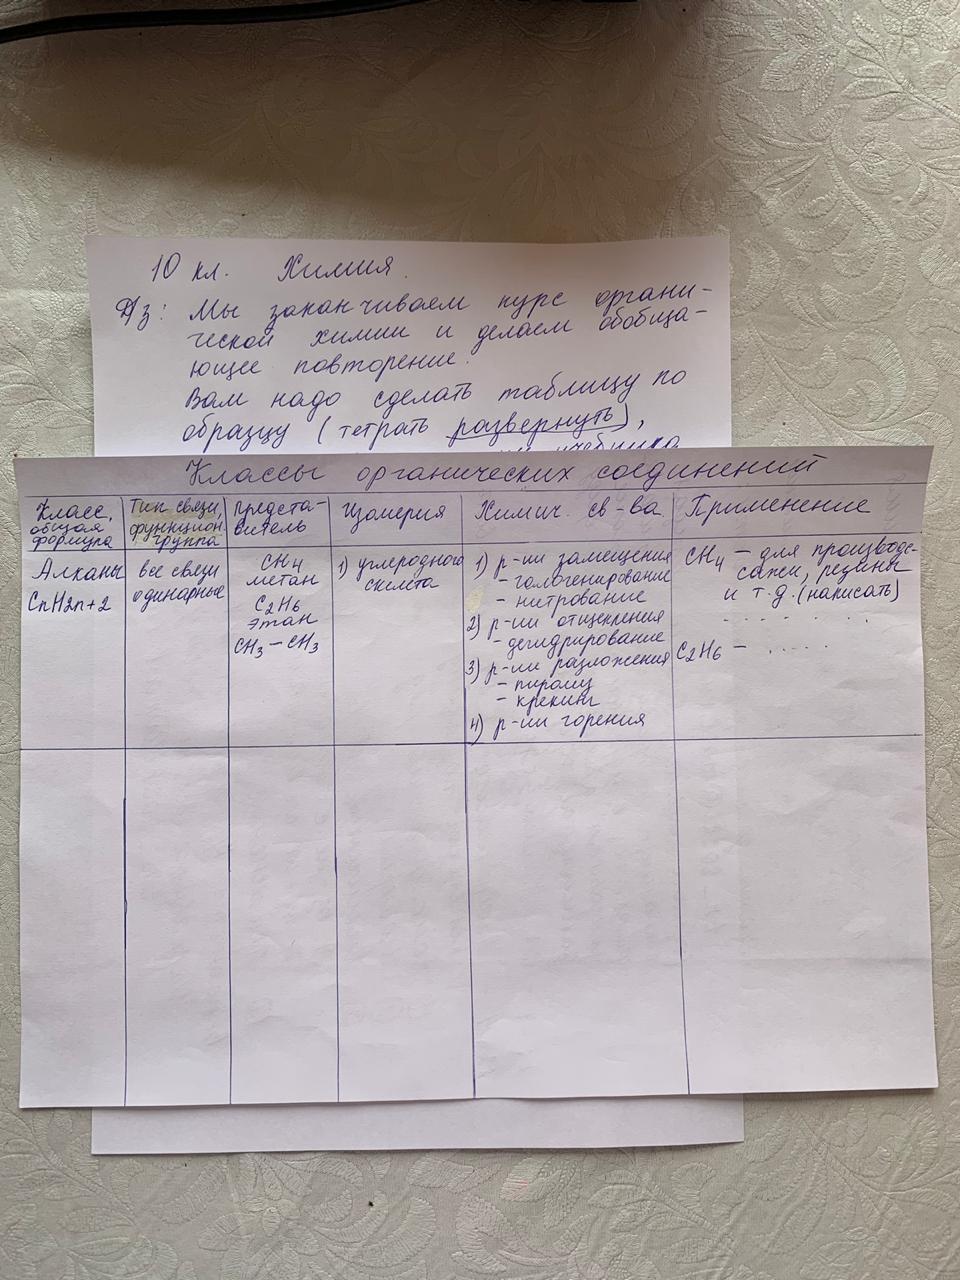 10 кл. Химия.
Д/з: Мы заканчиваем курс органи-
ческой химии и делаем обобща-
ющее повторение.
Вам надо сделать таблицу по
образцу (тетрать развернуть),
учебника
Классы органических соединений
Класс,
общая
формула
Тип связи,
функцион.
группа
Предста-
витель
Изомерия
Химич. св-ва
Применение
Алканы
CnH2n+2
все связи
одинарные
CH4
метан
C2H6
этан
CH3 – CH3
1) углеродного
скелета
1) р-ии замещения
- галогенирование
- нитрование
2) р-ии отщепления
- дегидрирование
3) р-ии разложения
- пиролиз
- крекинг
4) р-ии горения
CH4 – для производс-
сажи, резины
и т.д. (написать)
. . . . . . . . .
C2H6 – . . . . . .